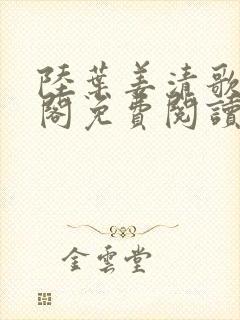 陸葉姜清歌
閣免費閱讀
金雲堂